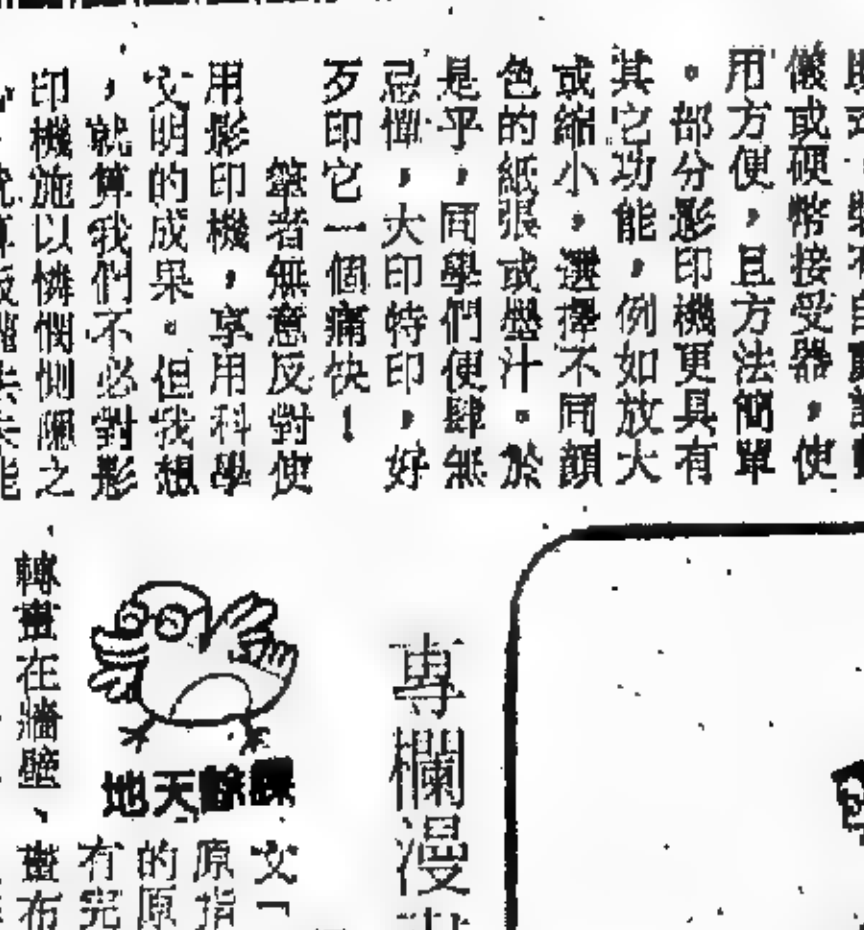 儀或硬幣接受器，使
用方便，且方法簡單
。部分影印機更具有
其它功能，例如放大
或縮小，選擇不同顏
色的紙張或墨汁。於
是乎，同學們便肆無
忌憚，大印特印，好
歹印它一個痛快！
筆者無意反對使
用影印機，享用科學
文明的成果。但我想
，就算我們不必對影
印機施以憐憫惻隱之
專欄漫
課餘天地
文「
原指
的原
有完
轉畫在牆壁、畫布